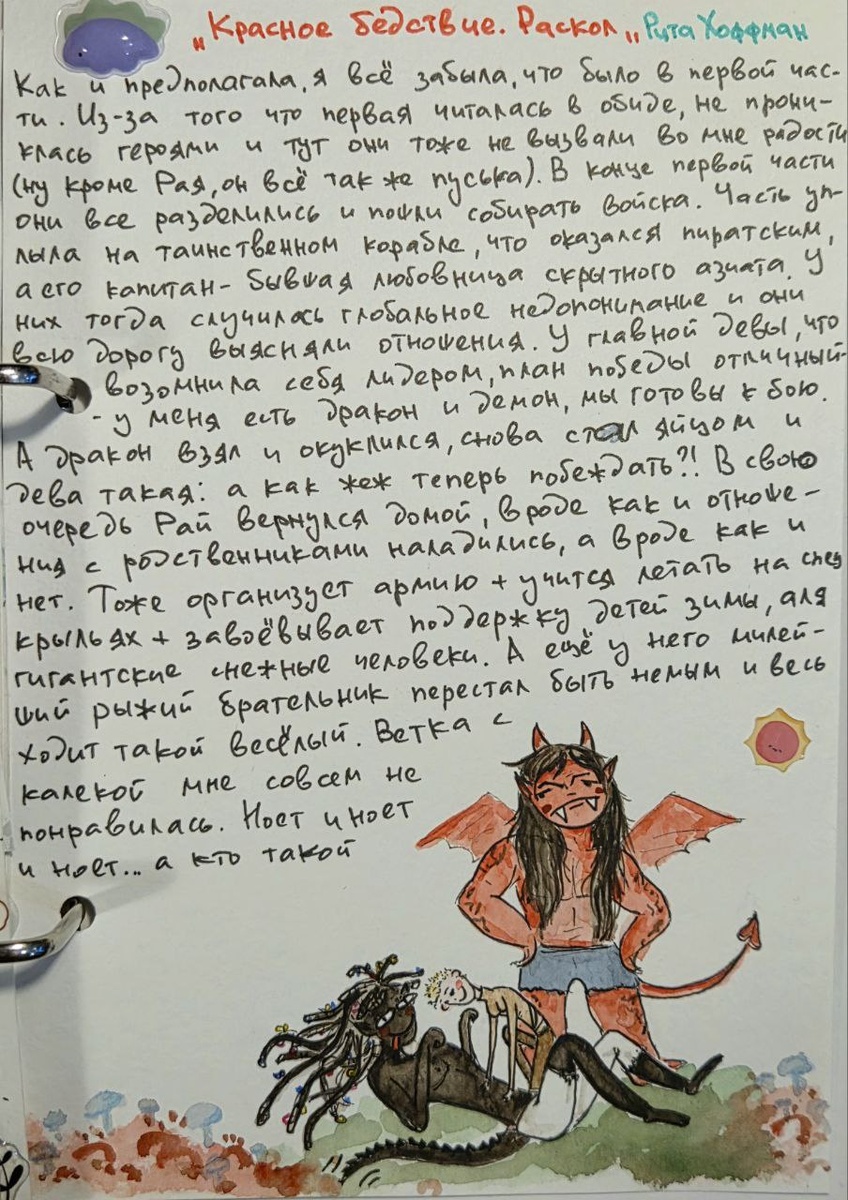 „Красное бедствие. Раскол„ Рита Хоффман
Как и предполагала, я всё забыла, что было в первой час-
ти. Из-за того что первая читалась в обиде, не прони-
клась героями и тут они тоже не вызвали во мне радости
(ну кроме Рая, он всё так же пуська). В конце первой части
они все разделились и пошли собирать войска. Часть уп-
лыла на таинственном корабле, что оказался пиратским,
а его капитан- бывшая любовница скрытного азиата. У
них тогда случилось глобальное недопонимание и они
всю дорогу выясняли отношения. У главной девы, что
возомнила себя лидером, план победы отличный-
- у меня есть дракон и демон, мы готовы к бою.
А дракон взял и окуклился, снова стал яйцом и
дева такая: а как жеж теперь побеждать?! В свою
очередь Рай вернулся домой, вроде как и отноше-
ния с родственниками наладились, а вроде как и
нет. Тоже организует армию + учится летать на спец
крыльях + завоёвывает поддержку детей зимы, аля
гигантские снежные человеки. А ещё у него милей-
ший рыжий брательник перестал быть немым и весь
ходит такой весёлый. Ветка с
калекой мне совсем не
понравилась. Ноет и ноет
и ноет... а кто такой